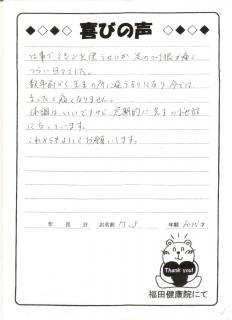 ◆◇◆◇ 喜びの声 ◇◆◇◆
仕事でミシンを使うせいか 足の付け根が痛く
つらい日々でした。
数年前から先生の所に通うようになり 今では
まったく痛くなりません。
体調はいいですが、定期的に先生のお世話
になっています。
これからもよろしくお願いします。
年 月 日 お名前 M.S 年齢 60代 才
Thank you!
福田健康院にて